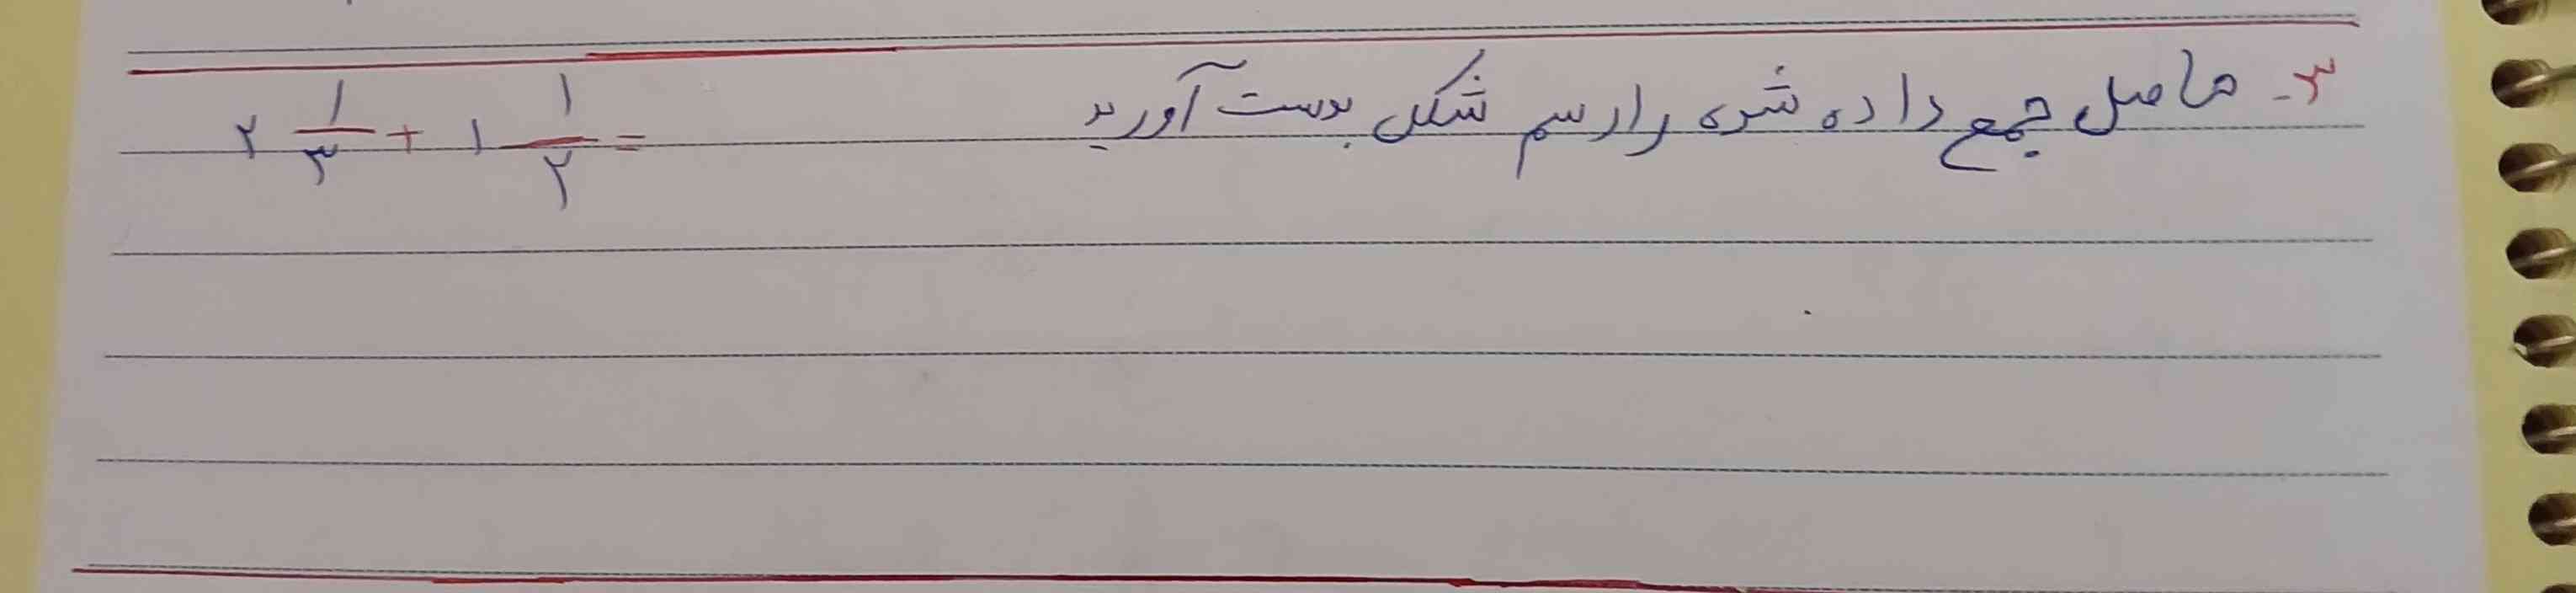 ۳- حاصل جمع داده شده را رسم شکل بدست آورید
۲ ۱/۳ + ۱ ۱/۲ =